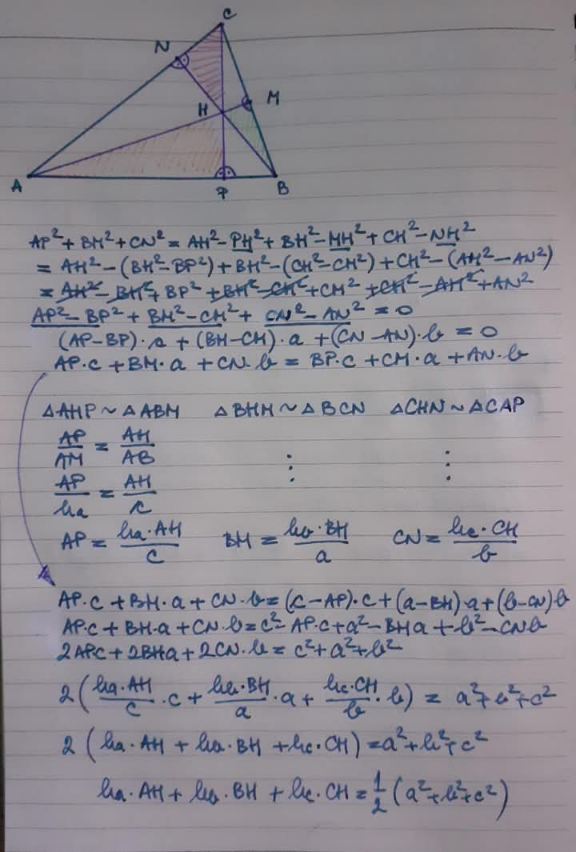 C
N
H
M
A
P
B
AP² + BM² + CN² = AH² - PH² + BH² - MH² + CH² - NH²
= AH² - (BH² - BP²) + BH² - (CH² - CM²) + CH² - (AH² - AN²)
= AH² - BH² + BP² + BH² - CH² + CM² + CH² - AH² + AN²
AP² - BP² + BM² - CM² + CN² - AN² = 0
(AP - BP)·c + (BM - CM)·a + (CN - AN)·b = 0
AP·c + BM·a + CN·b = BP·c + CM·a + AN·b
△AHP ~ △ABM △BHM ~ △BCN △CHN ~ △CAP
AP/AM = AH/AB ⋮ ⋮
AP/ha = AH/c
AP = ha·AH/c BM = hb·BH/a CN = hc·CH/b
AP·c + BM·a + CN·b = (c - AP)·c + (a - BM)·a + (b - CN)b
AP·c + BM·a + CN·b = c² - AP·c + a² - BMa + b² - CNb
2APc + 2BMa + 2CN·b = c² + a² + b²
2(ha·AH/c ·c + hb·BH/a ·a + hc·CH/b ·b) = a² + b² + c²
2(ha·AH + hb·BH + hc·CH) = a² + b² + c²
ha·AH + hb·BH + hc·CH = 1/2 (a² + b² + c²)